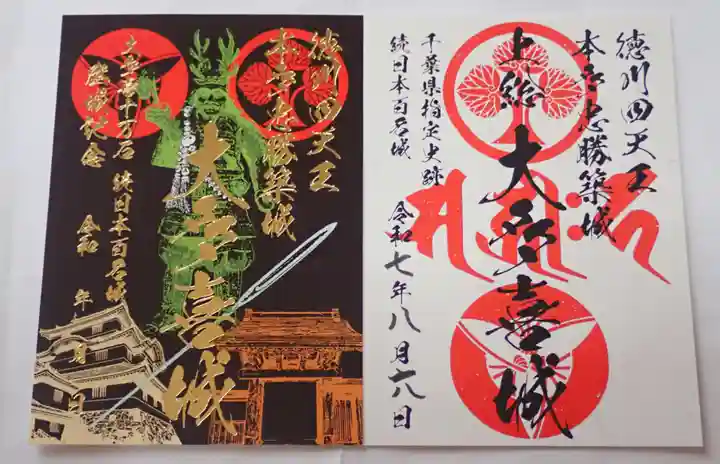 徳川四天王
本多忠勝築城
大多喜城
続日本百名城
令和 年 月 日
大多喜十万石
徳川四天王
本多忠勝築城
上総 大多喜城
千葉県指定史跡
続日本百名城
令和七年八月六八日